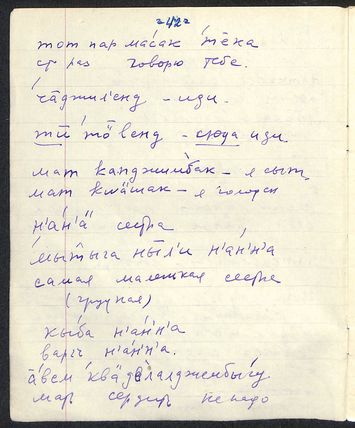 -42-
тот пар ма́сак те́ка
ст раз говорю тебе.
ча́джиле́нд - иди.
тӣ то̄венд - сюда иди.
мат канджимбак - я сыт.
мат кыӓшак - я голоден
н'а́н'ӓ сестра
мы́тыга ны́л'и н'а́н'н'а
самая маленькая сестра
(грудная)
кы́ба н'а́н'н'а
варɣ н'а́н'н'а.
а̄вем ква̄дэ̄лалджембы́гу.
мать сердить не надо